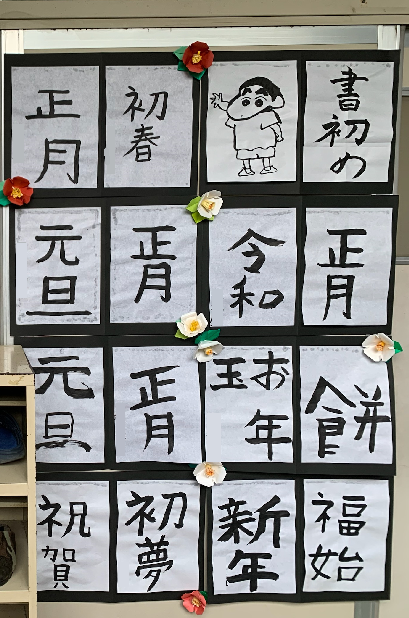 書初め
初春
正月
正月
令和
正月
元旦
餅
お年玉
正月
元旦
福始
新年
初夢
祝賀